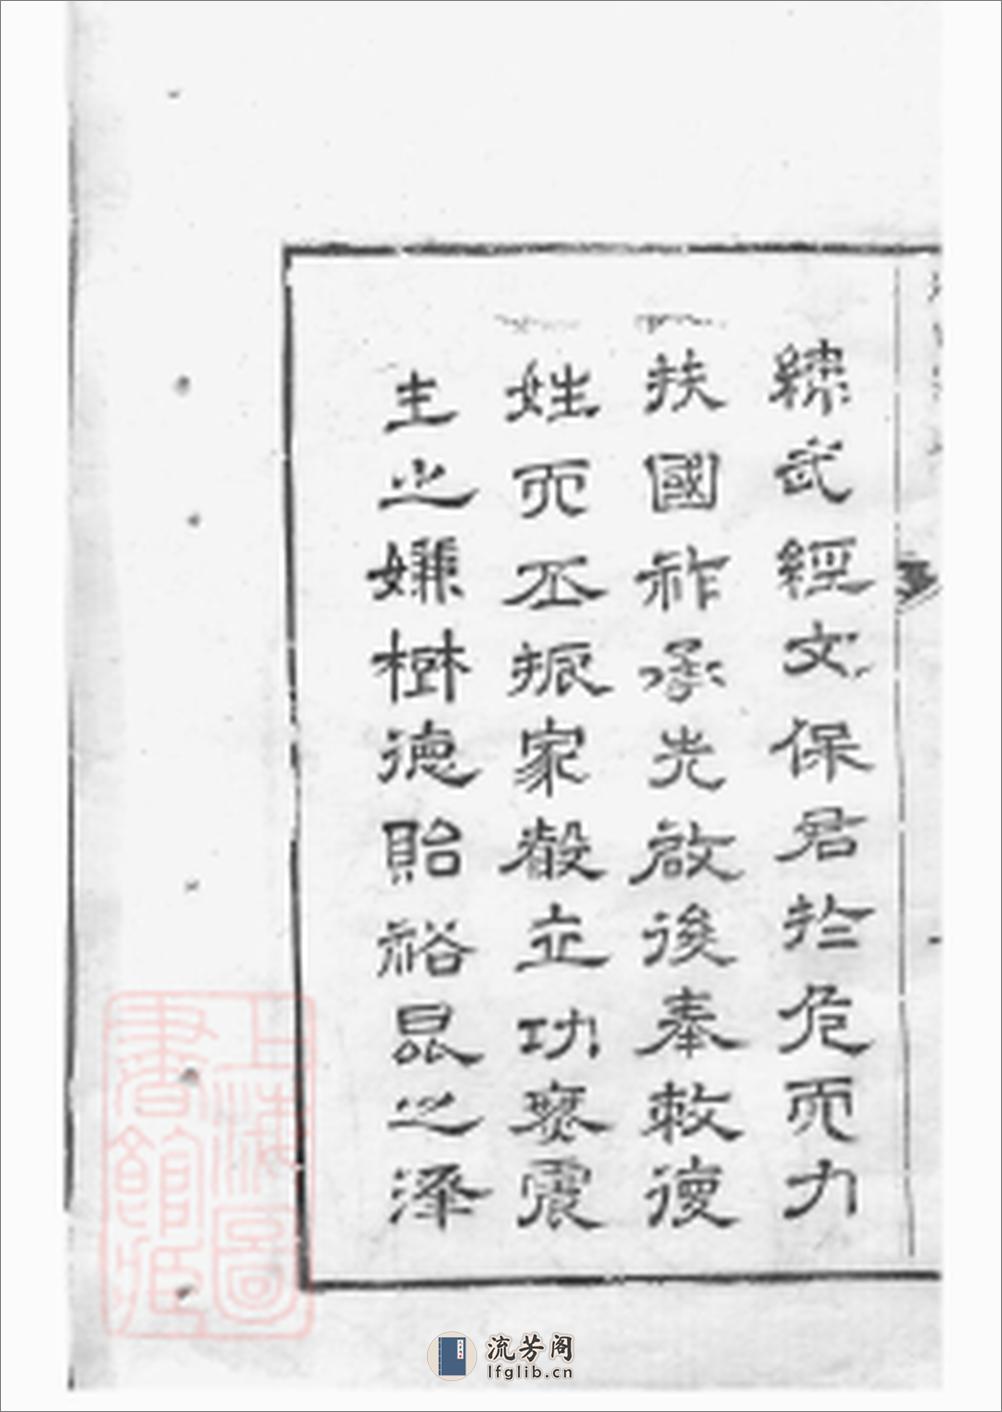 緯武經文保君於危而力
扶國祚承先啟後奉敕復
姓而丕振家聲立功震
主之嫌樹德貽裕昆之澤
上海圖
書館藏
流芳阁
lfglib.cn